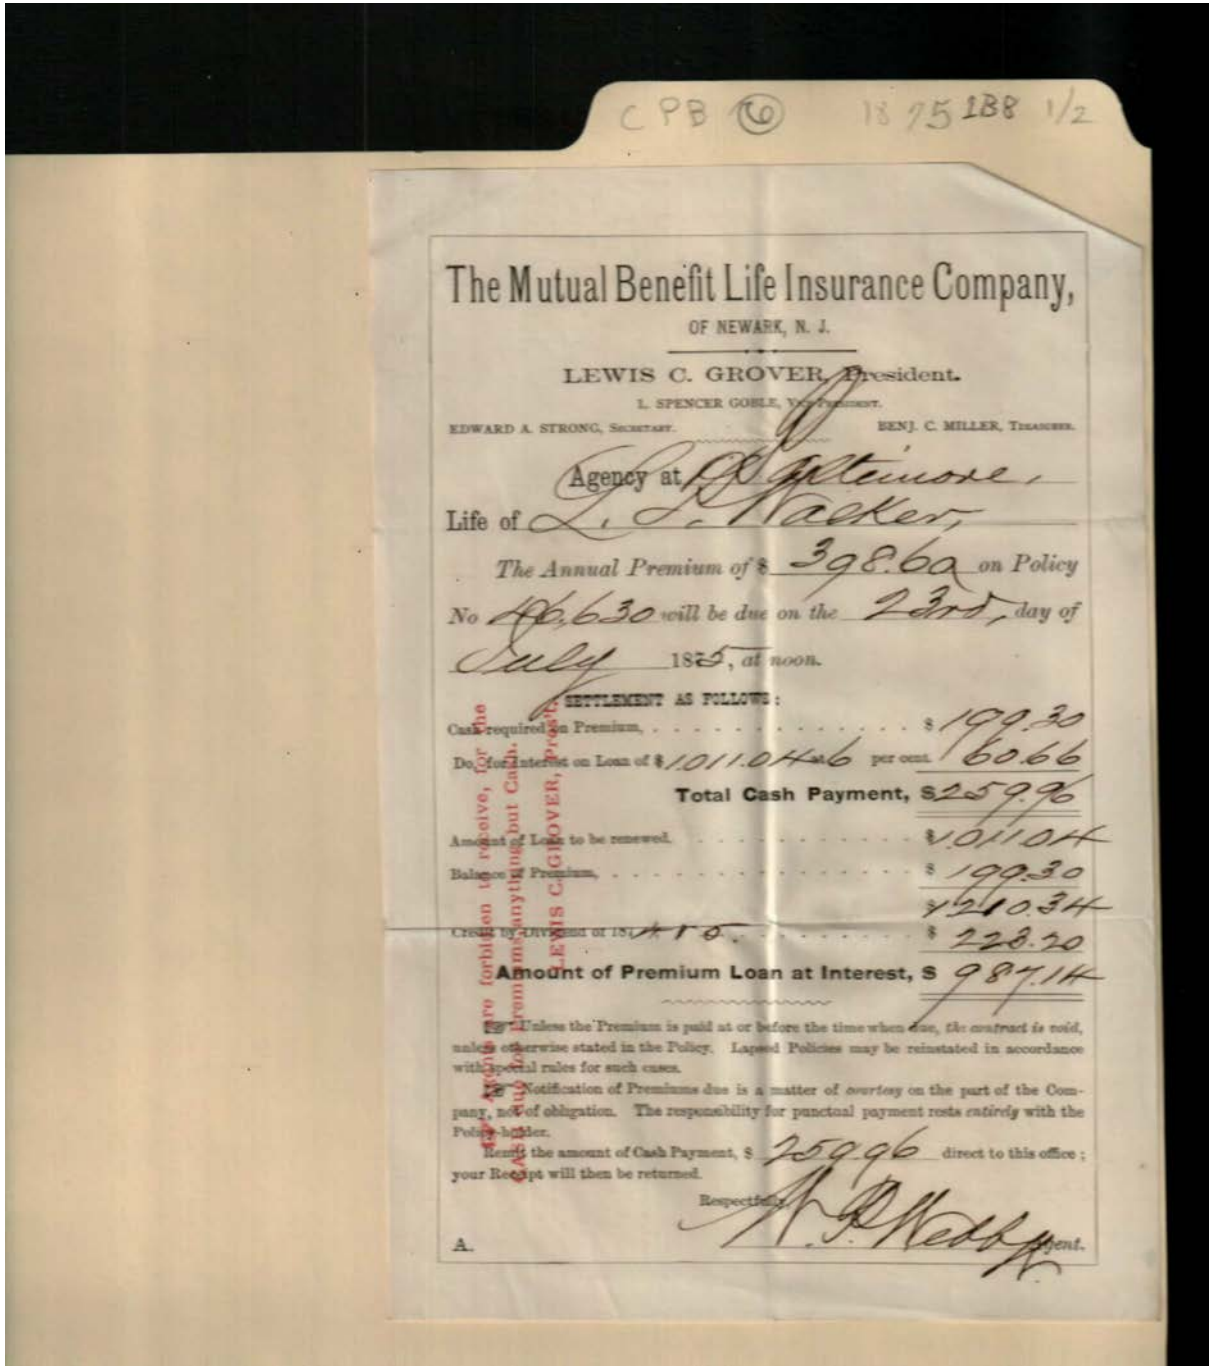 CPB 6 1875 1B8 1/2
The Mutual Benefit Life Insurance Company,
OF NEWARK, N. J.
LEWIS C. GROVER, President.
L. SPENCER GOBLE, Vice President.
EDWARD A. STRONG, Secretary. BENJ. C. MILLER, Treasurer.
Agency at Baltimore,
Life of L. P. Walker,
The Annual Premium of $ 398.60 on Policy
No 46,630 will be due on the 23rd, day of
July 1875, at noon.
SETTLEMENT AS FOLLOWS:
Cash required on Premium, $ 199.30
Do. for Interest on Loan of $1,011.04 at 6 per cent. 60.66
Total Cash Payment, $259.96
Amount of Loan to be renewed. $1,011.04
Balance of Premium, $ 199.30
$1,210.34
Credit by Dividend of 187 $ 223.20
Amount of Premium Loan at Interest, $ 987.14
Unless the Premium is paid at or before the time when due, the contract is void,
unless otherwise stated in the Policy. Lapsed Policies may be reinstated in accordance
with special rules for such cases.
Notification of Premiums due is a matter of courtesy on the part of the Com-
pany, not of obligation. The responsibility for punctual payment rests entirely with the
Policy-holder.
Remit the amount of Cash Payment, $ 259.96 direct to this office;
your Receipt will then be returned.
Respectfully,
Agent.
A.
Agents are forbidden to receive, for the
CASH due for Premiums, anything but Cash.
LEWIS C. GROVER, Pres't.